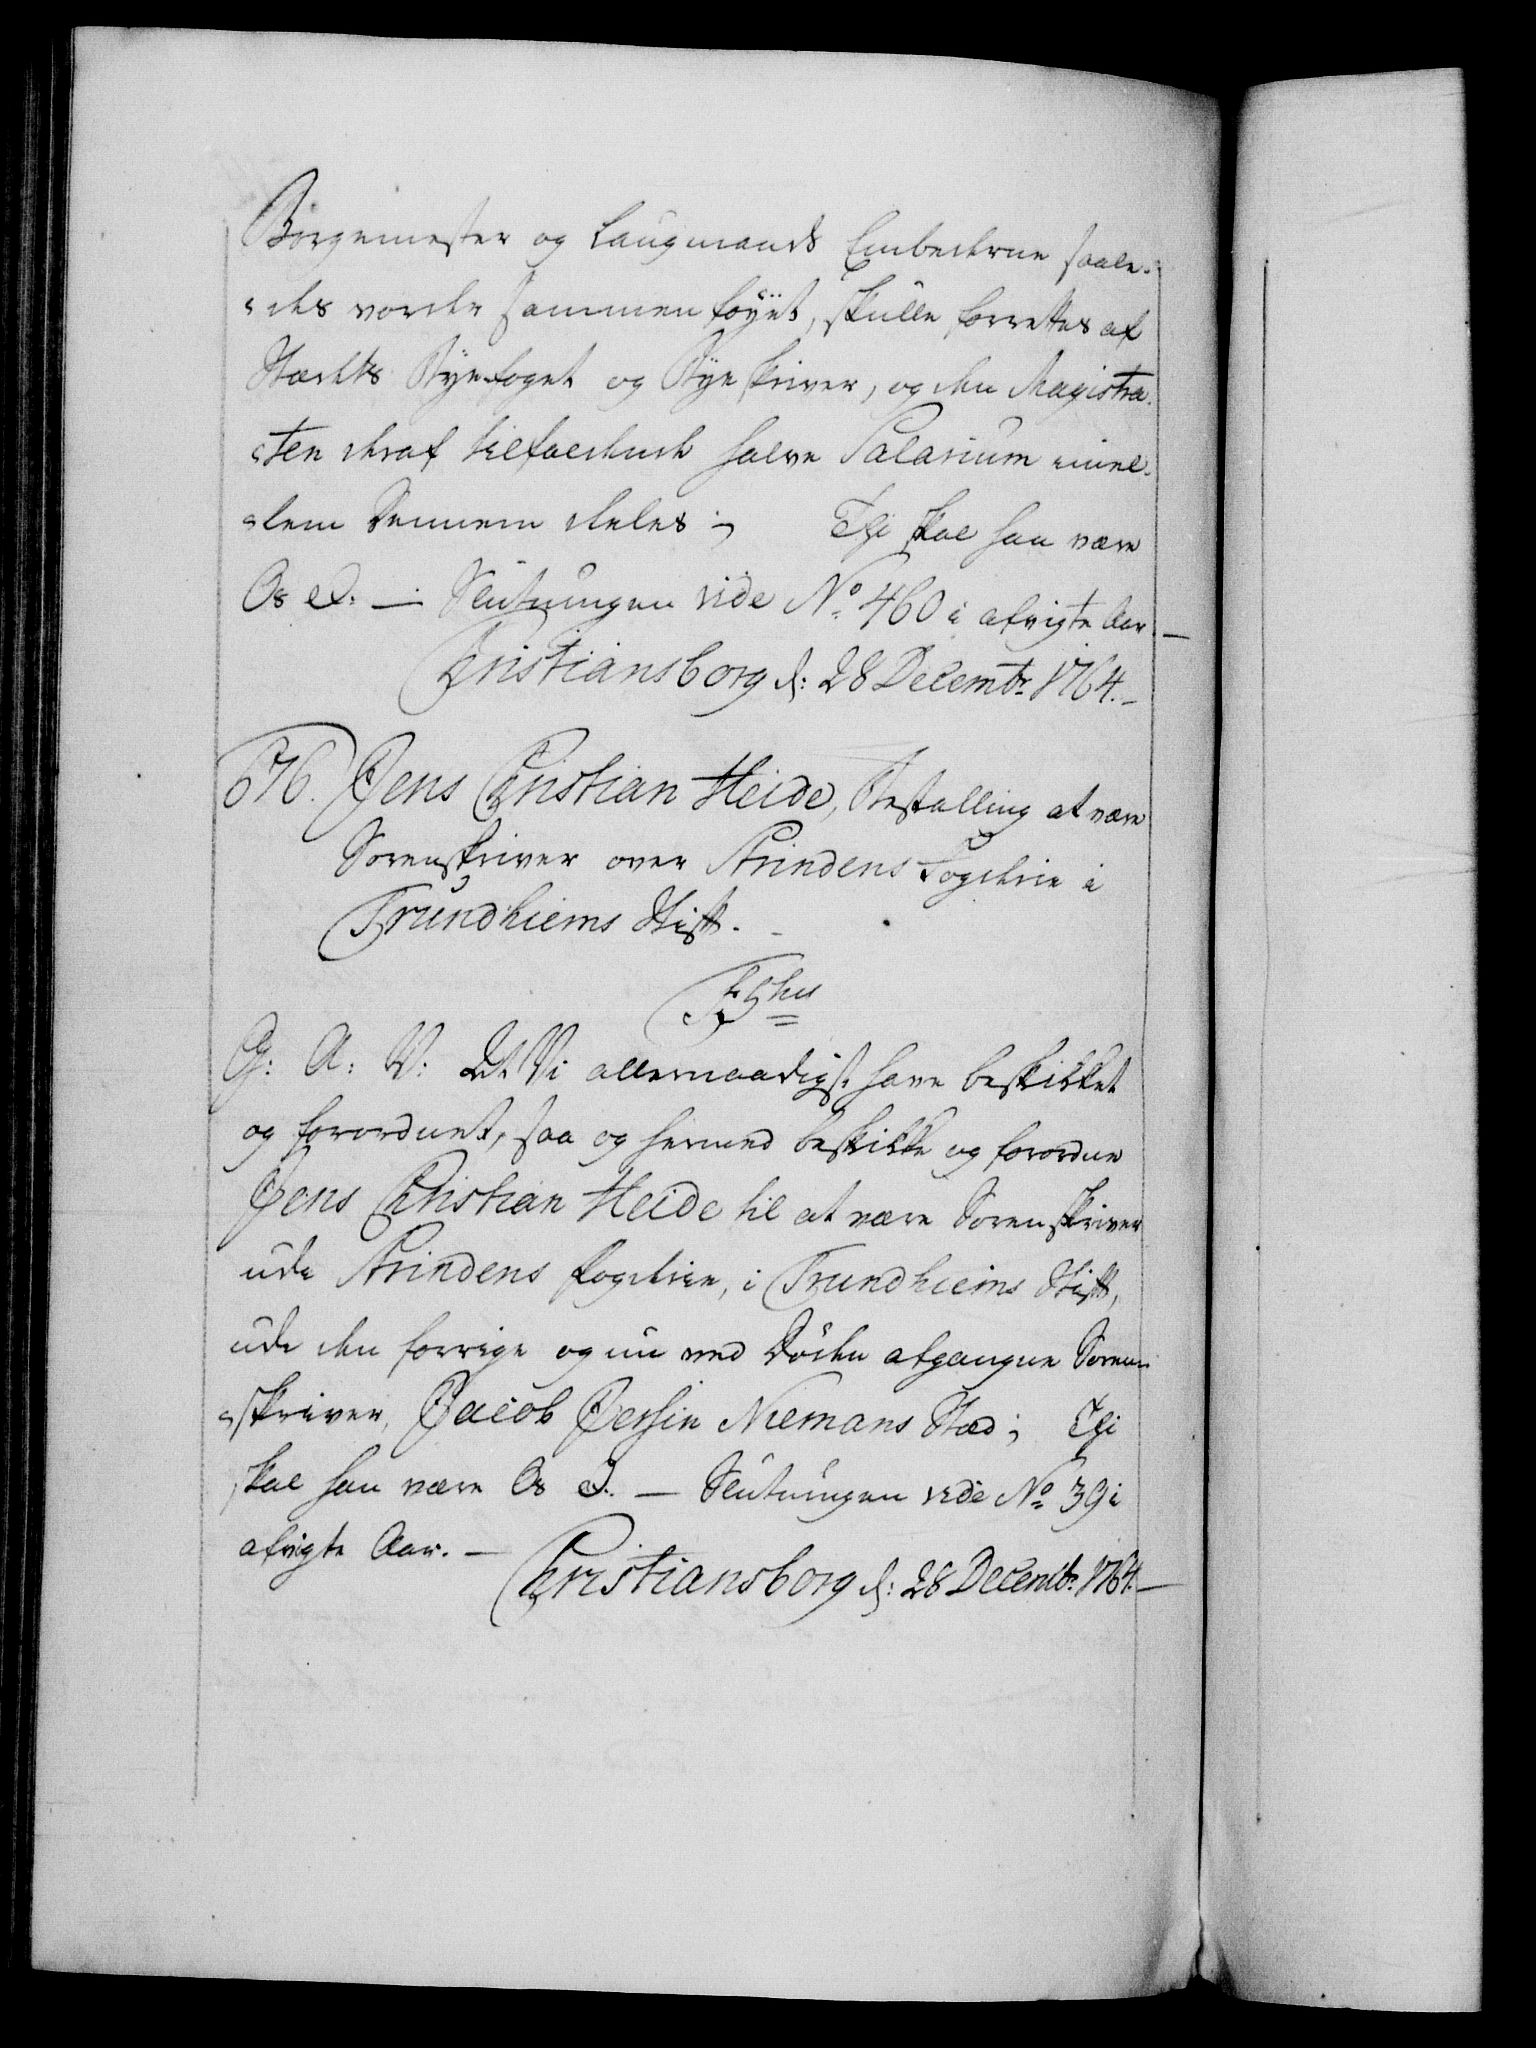 Borgemester og Laugmands Embederne saale-
des worder sammenføyet, skulle forrettes af
Stædets Byefoget og Byeskriver, og den Magistra-
ten deraf tilfaldende halve Salarium imel-
lem Dennem deeles; Thi skal han være
Os &c. — Slutningen vide No. 460 i afvigte Aar. —
Christiansborg d: 28 Decembr. 1764. —
676. Jens Christian Heide, Bestalling at være
Sorenskriver over Strindens Fogderie i
Trundhiems Stift. —
F 5tus
G: A: V: At Vi allernaadigst have beskikket
og forordnet, saa og hermed beskikke og forordne
Jens Christian Heide til at være Sorenskriver
udi Strindens Fogderie, i Trundhiems Stift,
udi den forrige og nu ved Døden afgangne Soren-
skriver, Jacob Niemans Sted; Thi
skal han være Os &. — Slutningen vide No. 39 i
afvigte Aar. —
Christiansborg d: 28 Decembr. 1764. —